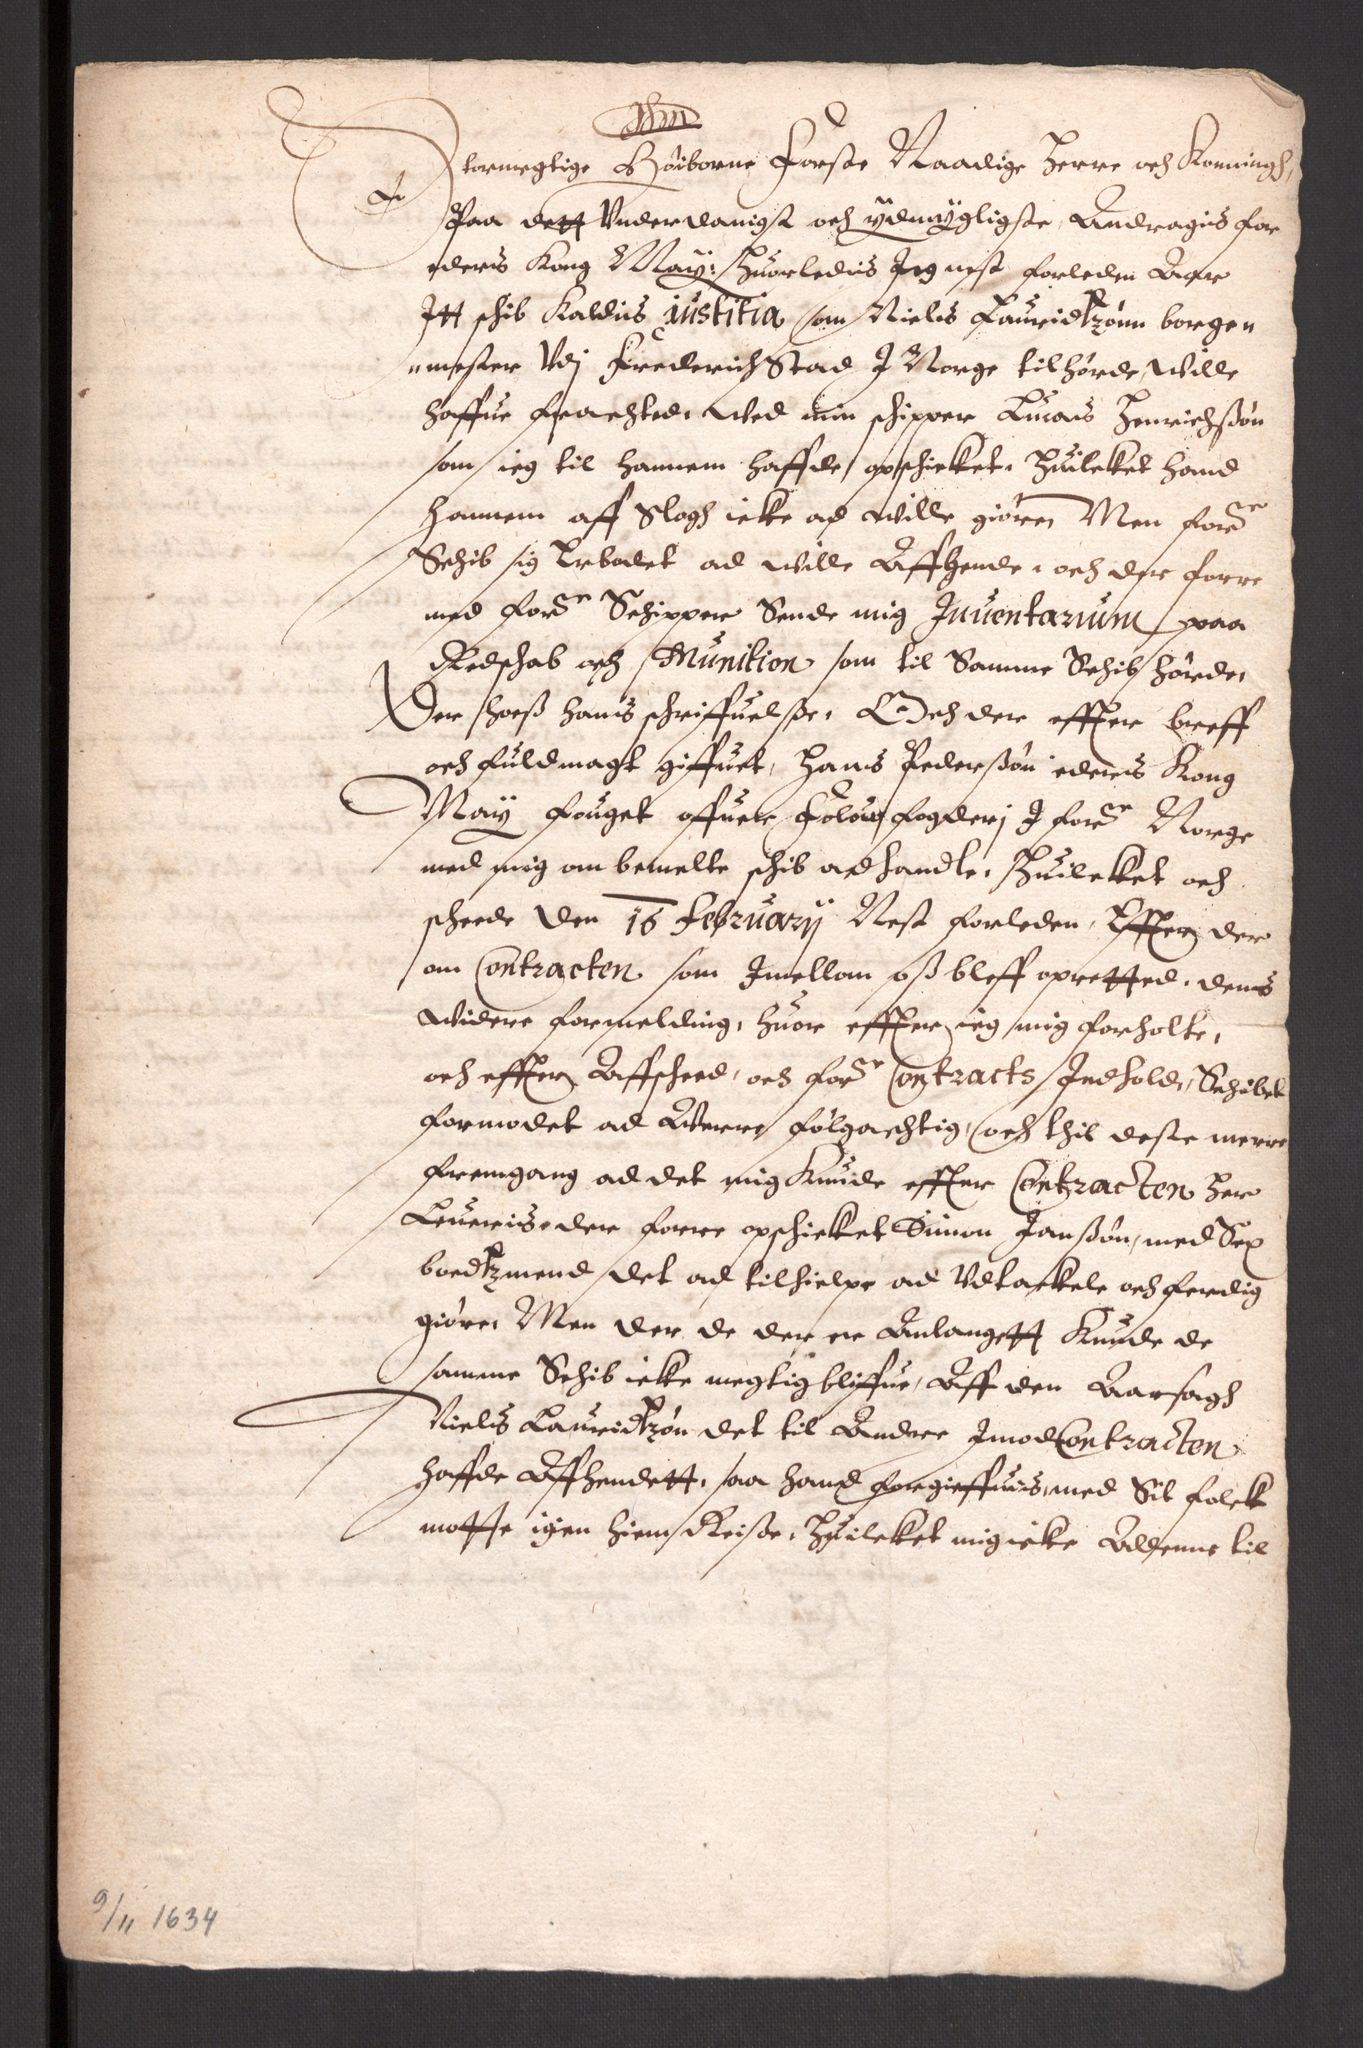 Stormegtige Høiborne Første Naadige Herre och Konningh,
Paa dett Vnderdanigst och ÿdmÿgligste, Andragis for
eders Kong May: Huorledis Jeg nest forleden Aar
Jtt schib Kaldis iustitia som Niels Lauridtzønn borgen
„mester Vdj Frederichstad J Norge tilhørde, wille
haffue frachted, wed min schipper Lucas Henrichsøn
som ieg til hannem haffde opschicket, Huilcket hand
hannem aff slogh icke ad wille giøre, Men forde
Schib sig Erbødet ad wille Affhende, och der forre
med forde Schipper Sende mig Inuentarium paa
Redschab och Munition som til Samme Schib hørde,
Der hoess hans schriffuelsse, Och der effter breff
och fuldmagt giffuet, Hans Pedersøn eders Kong
May fouget offuer Folow fogderj J forde Norge
med mig om bemelte schib ad handle, Huilcket och
scheede den 16 February Nest forleden, Effter der
om Contracten som Jmellom oss bleff opretted, dens
widere formelding, huor effter ieg mig forholte,
och effter Affscheed, och forde Contracts Jndhold, Schibet
formodet ad Werre følgachtig, och thil deste merre
fremgang ad det mig Kunde effter Contracten her
Leueris, der forre opschicket Simon Jansøn, med Sex
boedtzmend det ad tilhielpe ad Vdtackele och ferdig
giøre, Men der de der er Anlangett Kunde de
samme Schib icke megtig bliffue, Aff den Aarsagh
Niels Lauridtzøn det til Andre Jmod Contracten
haffde Affhendett, saa hand forgieffuis, med Sit folck
motte igen hiem Reisse, Huilcket mig icke Alleene til
9/11 1634